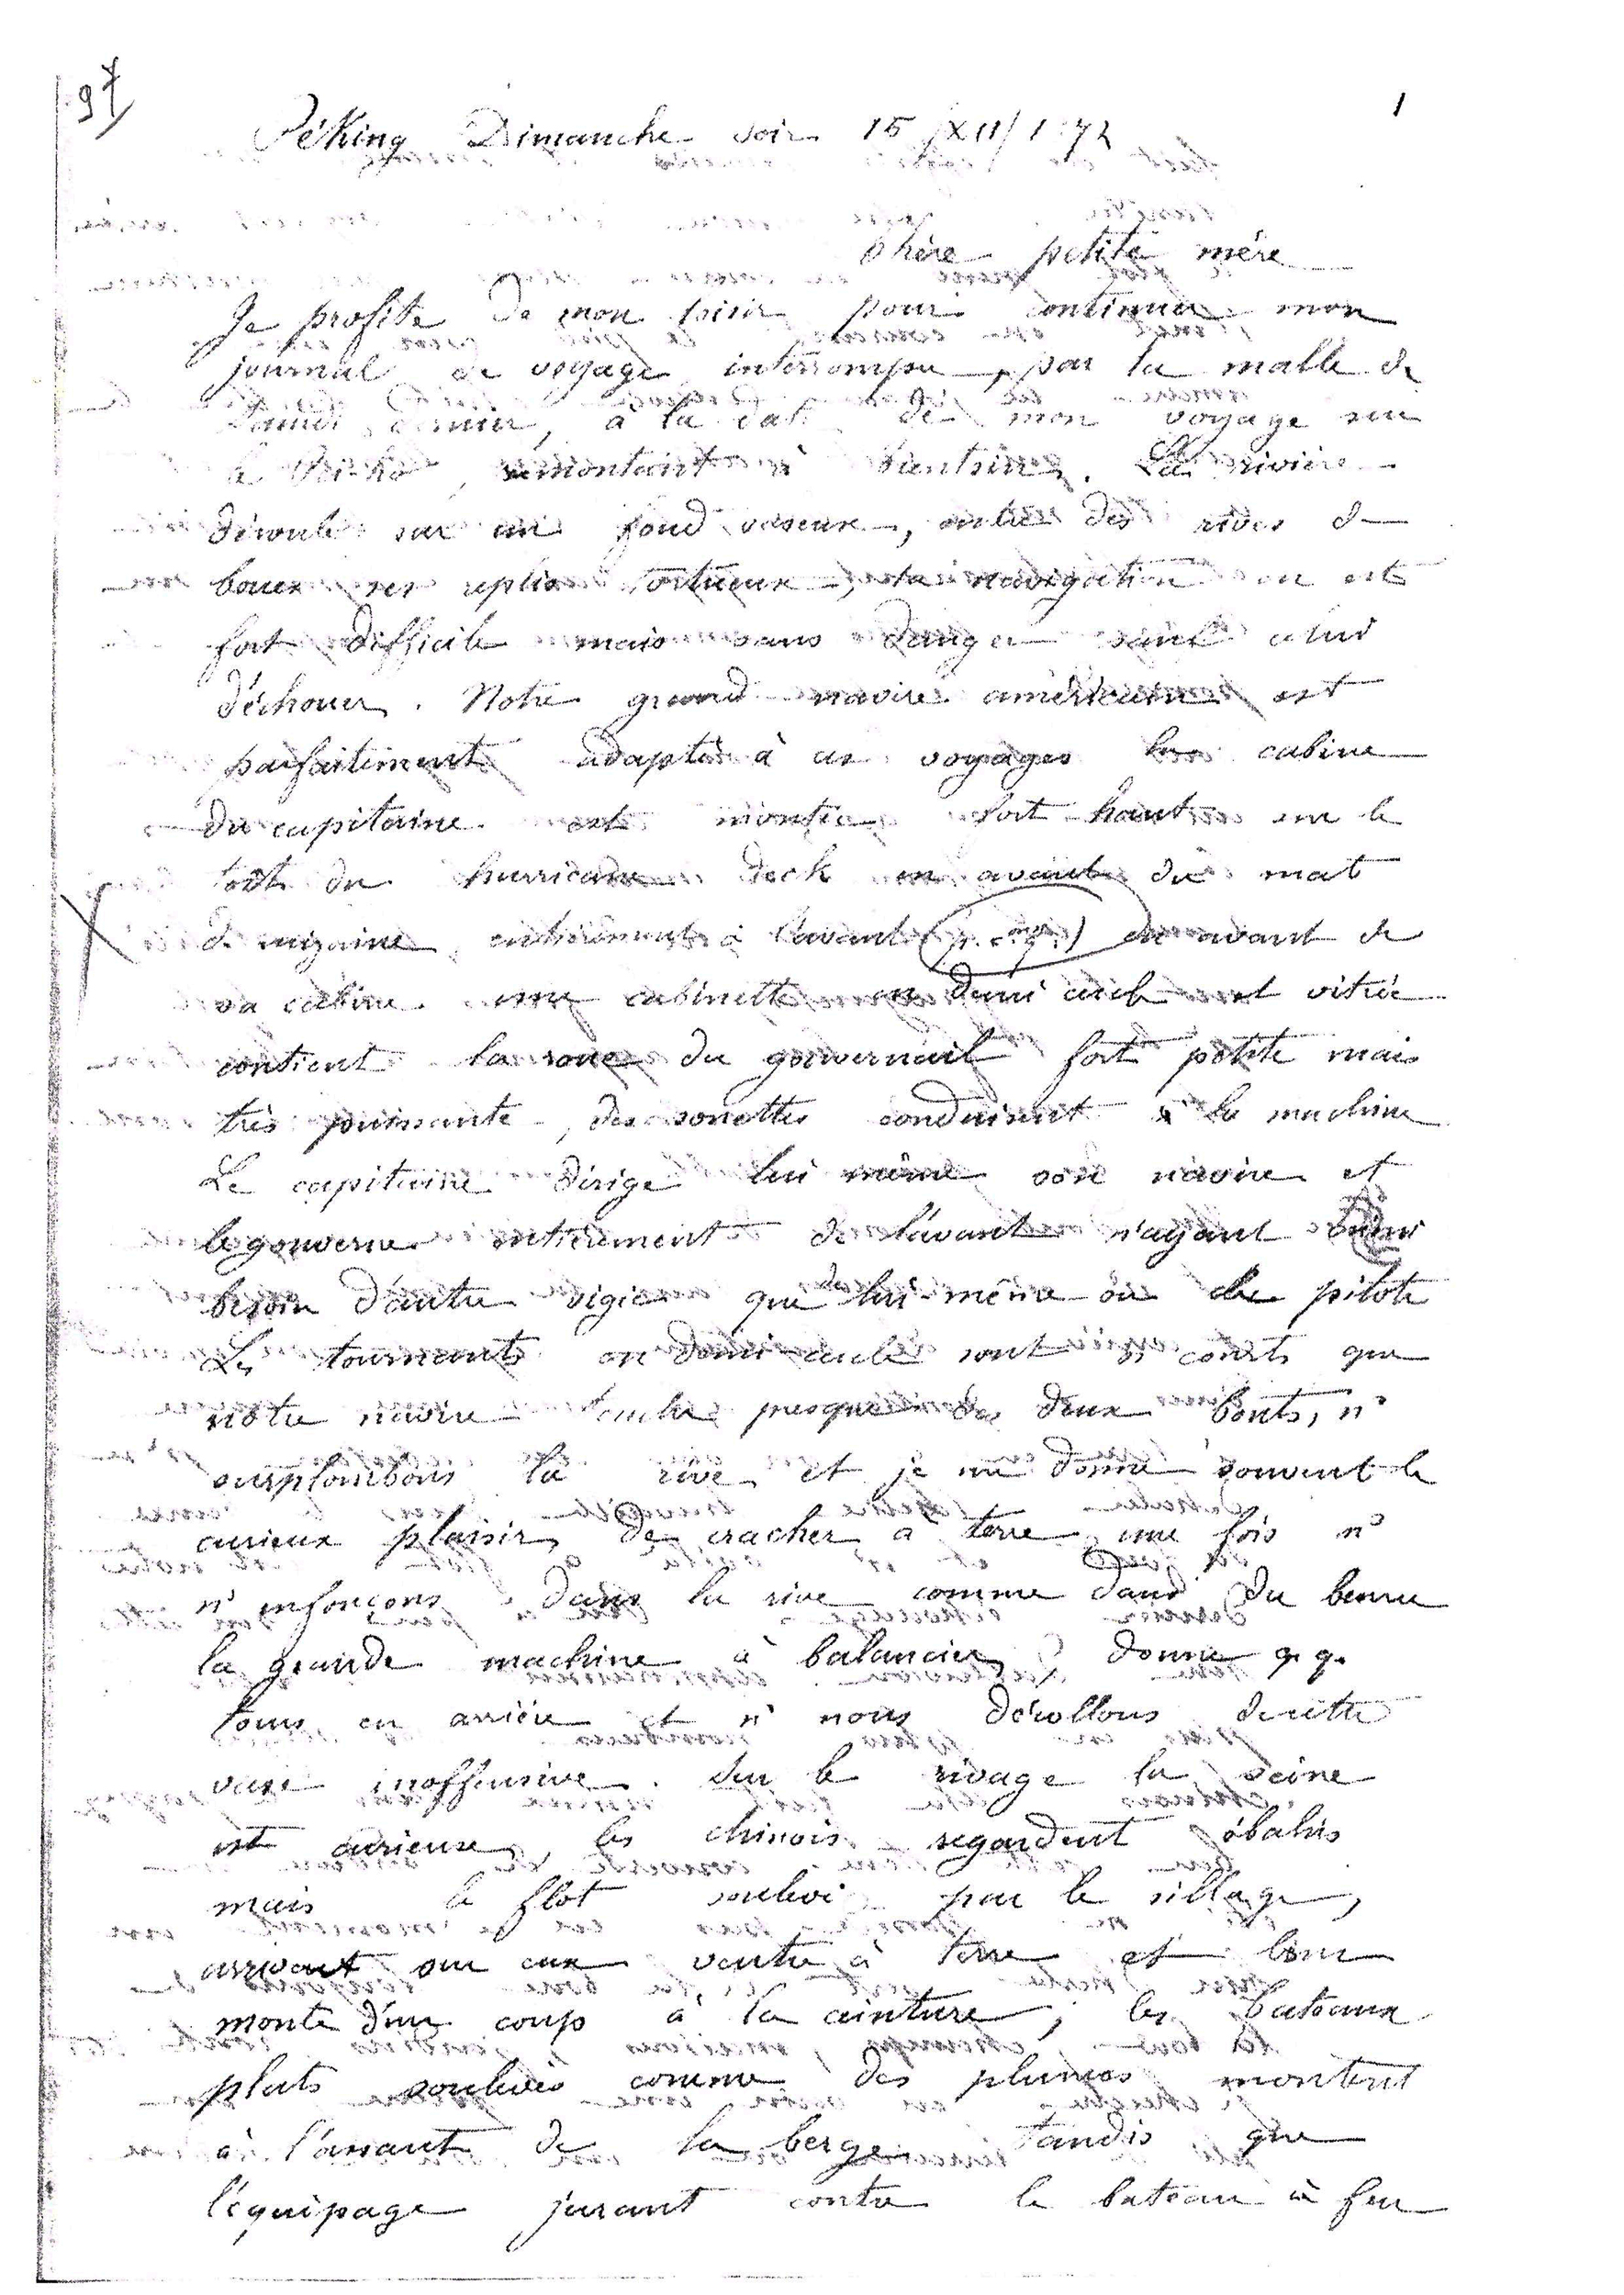 97
1
Péking Dimanche soir 15/XII/1872
Chère petite mère
Je profite de mon loisir pour continuer mon
journal de voyage interrompu, par la malle de
dernier, à la date de mon voyage sur
le remontant à Tientsin. La rivière
déroule sur un fond vaseux, entre des rives de
boues ses replis tortueux, la navigation en est
fort difficile mais sans danger sauf celui
d'échouer. Notre grand navire américain est
parfaitement adapté à ces voyages la cabine
du capitaine est montée fort haut sur le
toit du hurricane deck en avant du mat
de mizaine, entièrement à l'avant en avant de
sa cabine une cabinette en demi cercle et vitrée
contient la roue du gouvernail fort petite mais
très puissante, des sonettes conduisent à la machine
Le capitaine dirige lui même son navire et
le gouverne entièrement de l'avant n'ayant
besoin d'autre vigie que lui même ou le pilote
Les tournants en demi-cercle sont si courts que
notre navire touche presque des deux bouts, ns
surplombons la rive et je me donne souvent le
curieux plaisir de cracher à terre, une fois ns
ns enfonçons dans la rive comme dans du beurre
la grande machine à balancier donne q.q.
tours en arrière et ns nous décollons de cette
vase inoffensive. Sur le rivage la scène
est curieuse, les chinois regardent ébahis
mais le flot soulevé par le sillage,
arrivant sur eux ventre à terre et leur
monte d'un coup à la ceinture, les bateaux
plats soulevés comme des plumes montent
à l'assaut de la berge tandis que
l'équipage jurant contre le bateau à feu